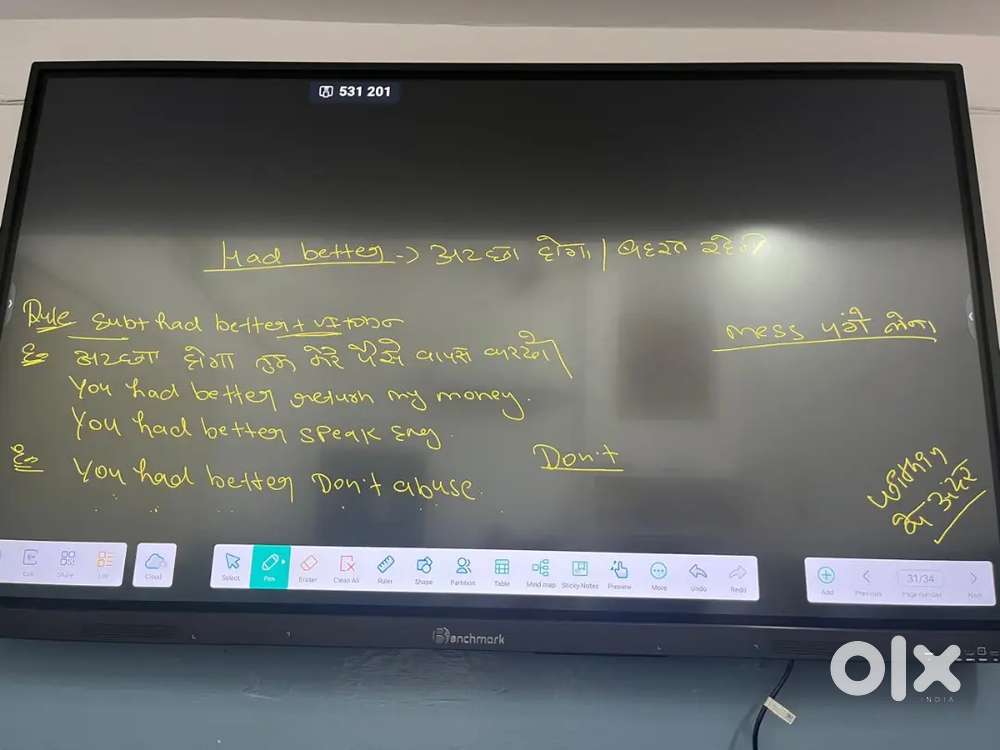 531 201
Had better -> अच्छा होगा / बेहतर रहेगा
Rule Sub + had better + VI +
Ex अच्छा होगा तुम मेरे पैसे वापस करदो।
You had better return my money.
You had better speak Eng.
Ex You had better Don't abuse.
Don't
mess पंगे लेना
within
के अंदर
Call Share List
Cloud
Select Pen Eraser Clean All Ruler Shape Partition Table Mind map Sticky Notes Preview More Undo Redo
Add Previous 31/34 Next
Benchmark
olx
INDIA